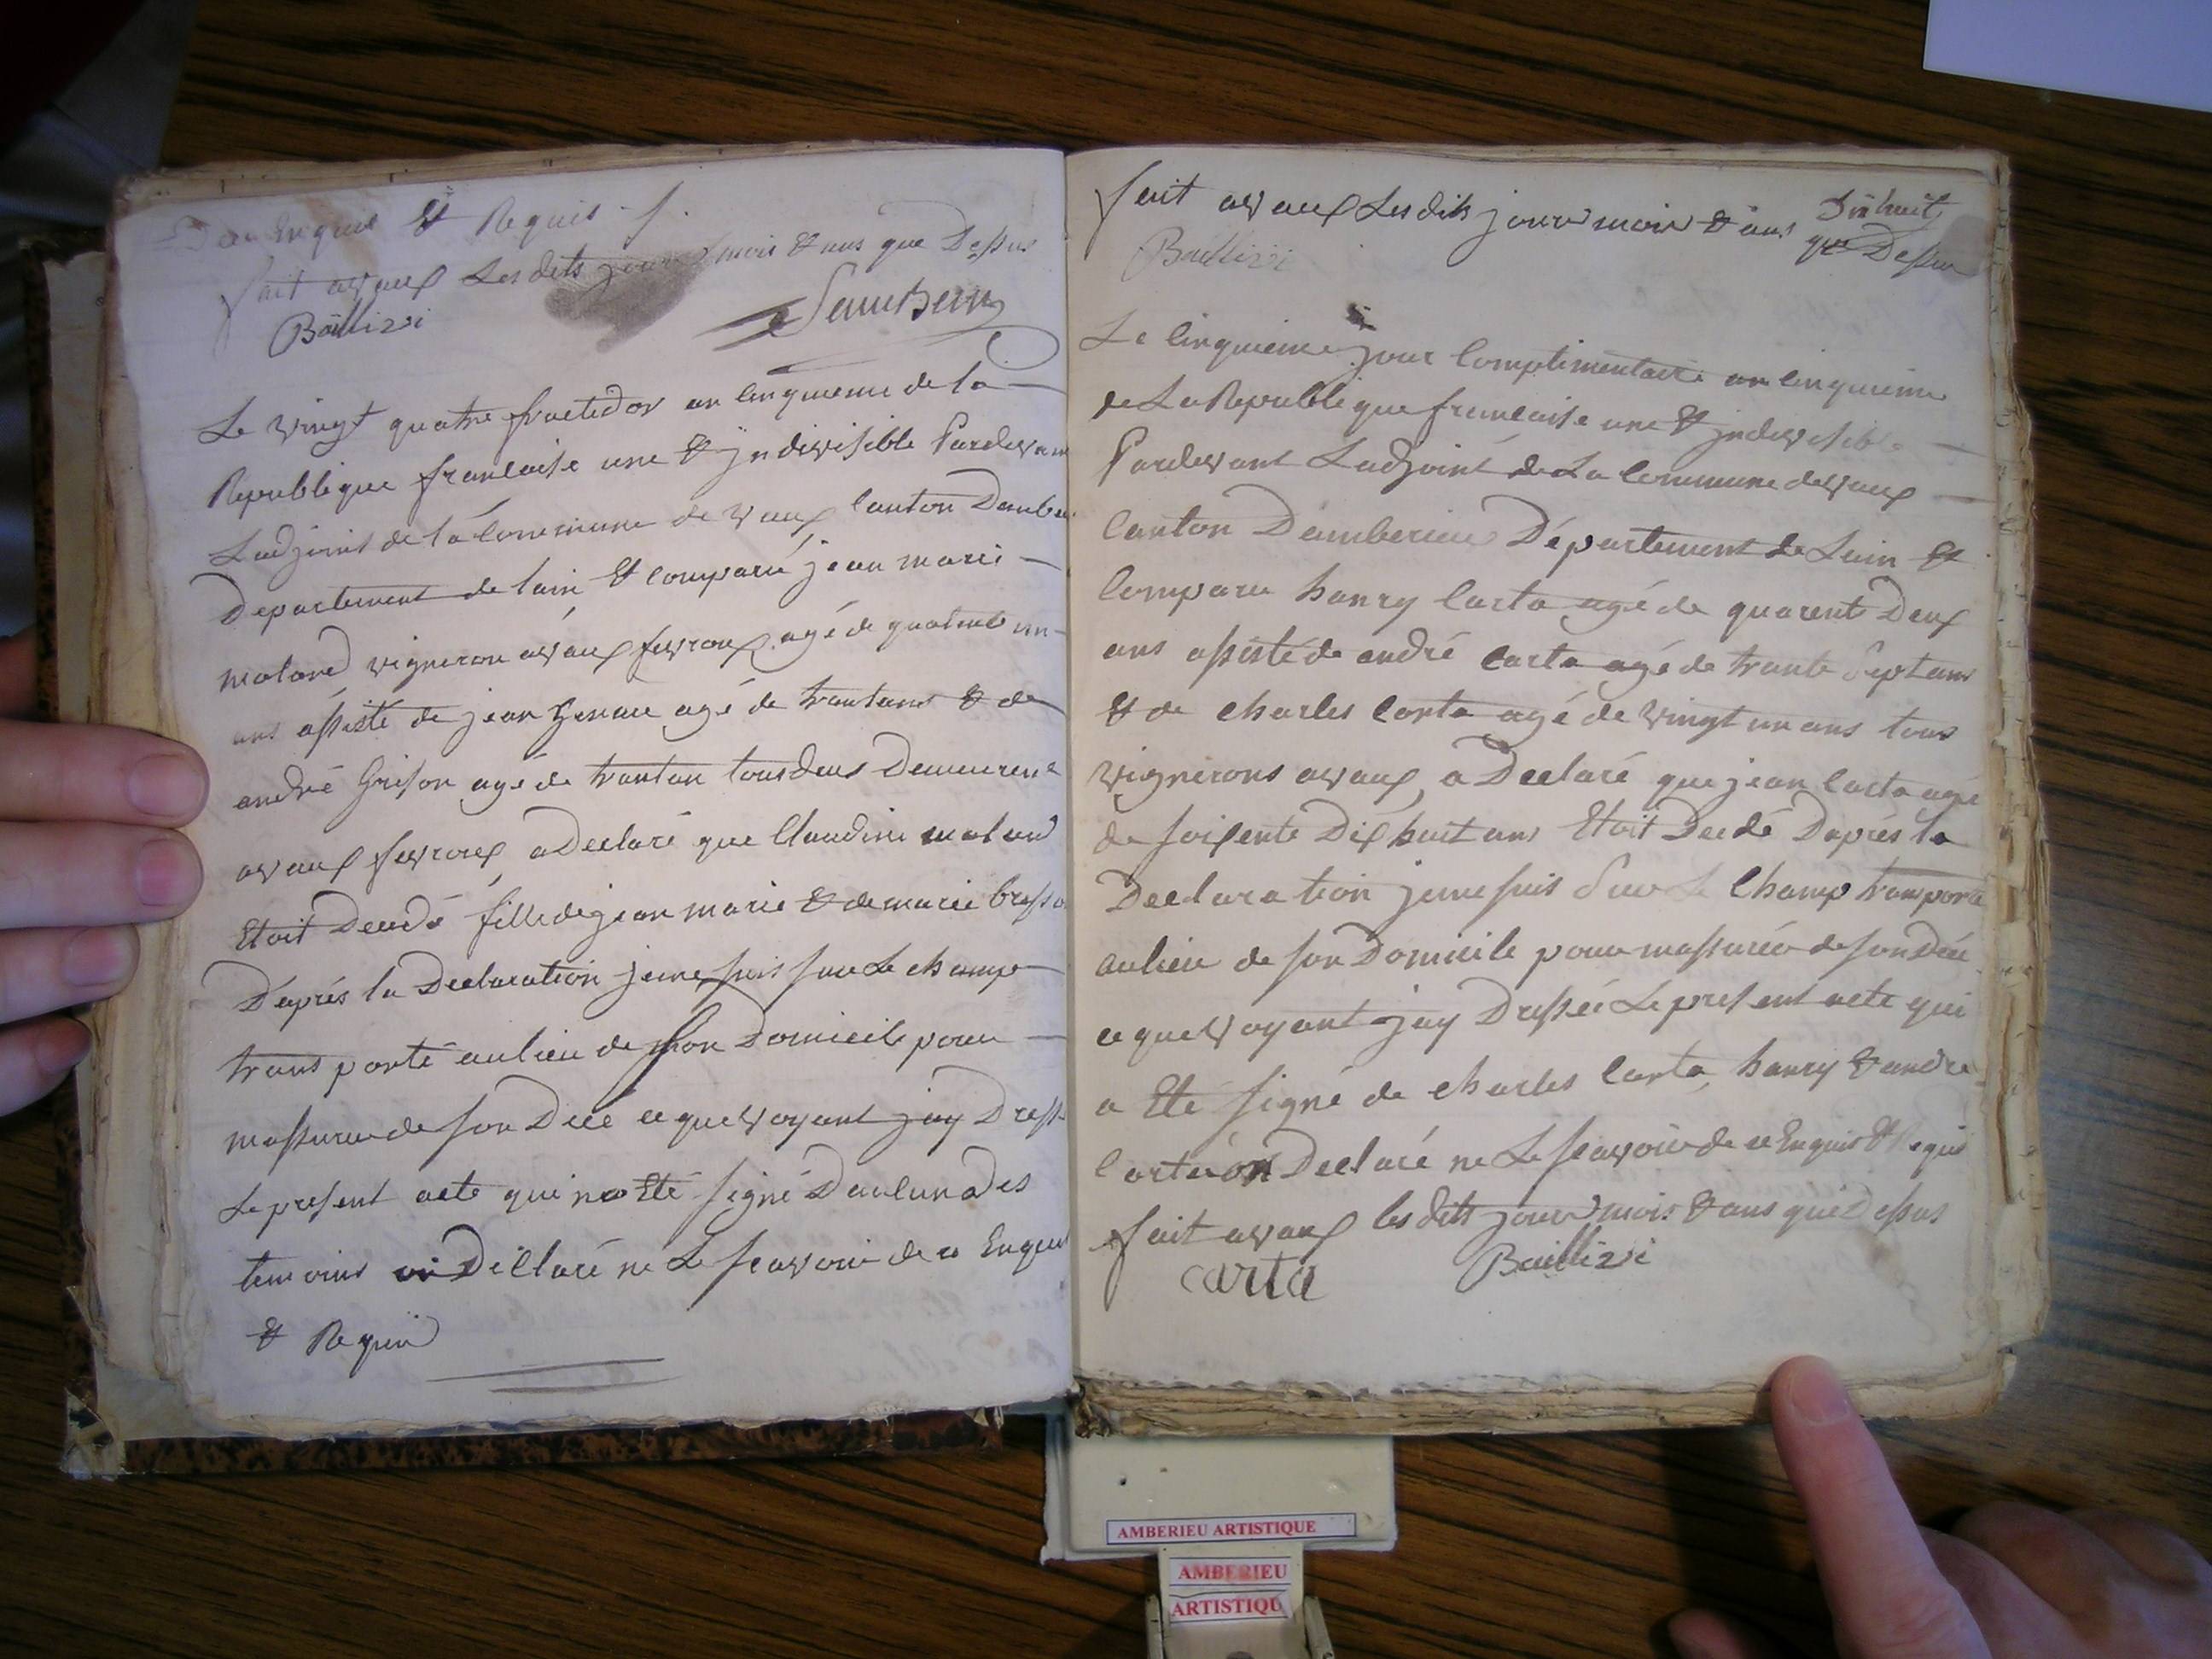 De ce Enquis & Requis
fait avaux Les dits jours mois & ans que Dessus
Baillizi
Le vingt quatre fructidor an cinquieme de la
Republique francaise une & jndivisible Pardevan
Ladjoint de la Commune de vaux Canton Dambe
Departement de lain & Comparu jean marie
molard vigneron avaux fevroux agé de quatante un
ans assisté de jean agé de trantans & de
andré Grison agé de trantan tous deus Demeurent
avaux fevroux a Declaré que Claudine molard
Etoit Decedé fille de jean marie & de marie bresso
Daprés la Declaration jeme suis sur Le champ
transporté aulieu de son Domicile pour
massurer de son Decé ce que voyant jay Dress
Le present acte qui na Eté signé Daucun Des
temoins on Declaré ne Le scavoir de ce Enquis
& Requis
fait avaux Les dits jours mois & ans que Dessus
Dixhuit
Baillizi
Le Cinquieme jour Complimentaire an Cinquieme
de La Republique francaise une & jndivisible
Pardevant Ladjoint de La Commune de vaux
Canton Damberieu Département de Lain &
Comparu hanry Carta agé de quarent Deux
ans assisté de andré Carta agé de trante Sept ans
& de charles Carta agé de vingt un ans tous
vignerons avaux, a Declaré que jean Carta agé
de soixente Dixhuit ans Etoit Decedé Daprés la
Declaration jeme suis Sur Le Champ transporté
aulieu de son Domicile pour massurér de son Décé
ce que voyant jay Dressée Le present acte qui
a Eté signé de charles Carta, hanry & andre
Carta on Declaré ne Le scavoir de ce Enquis & Requis
fait avaux les dits jours mois & ans que Dessus
carta Baillizi
AMBERIEU ARTISTIQUE
AMBERIEU
ARTISTIQU